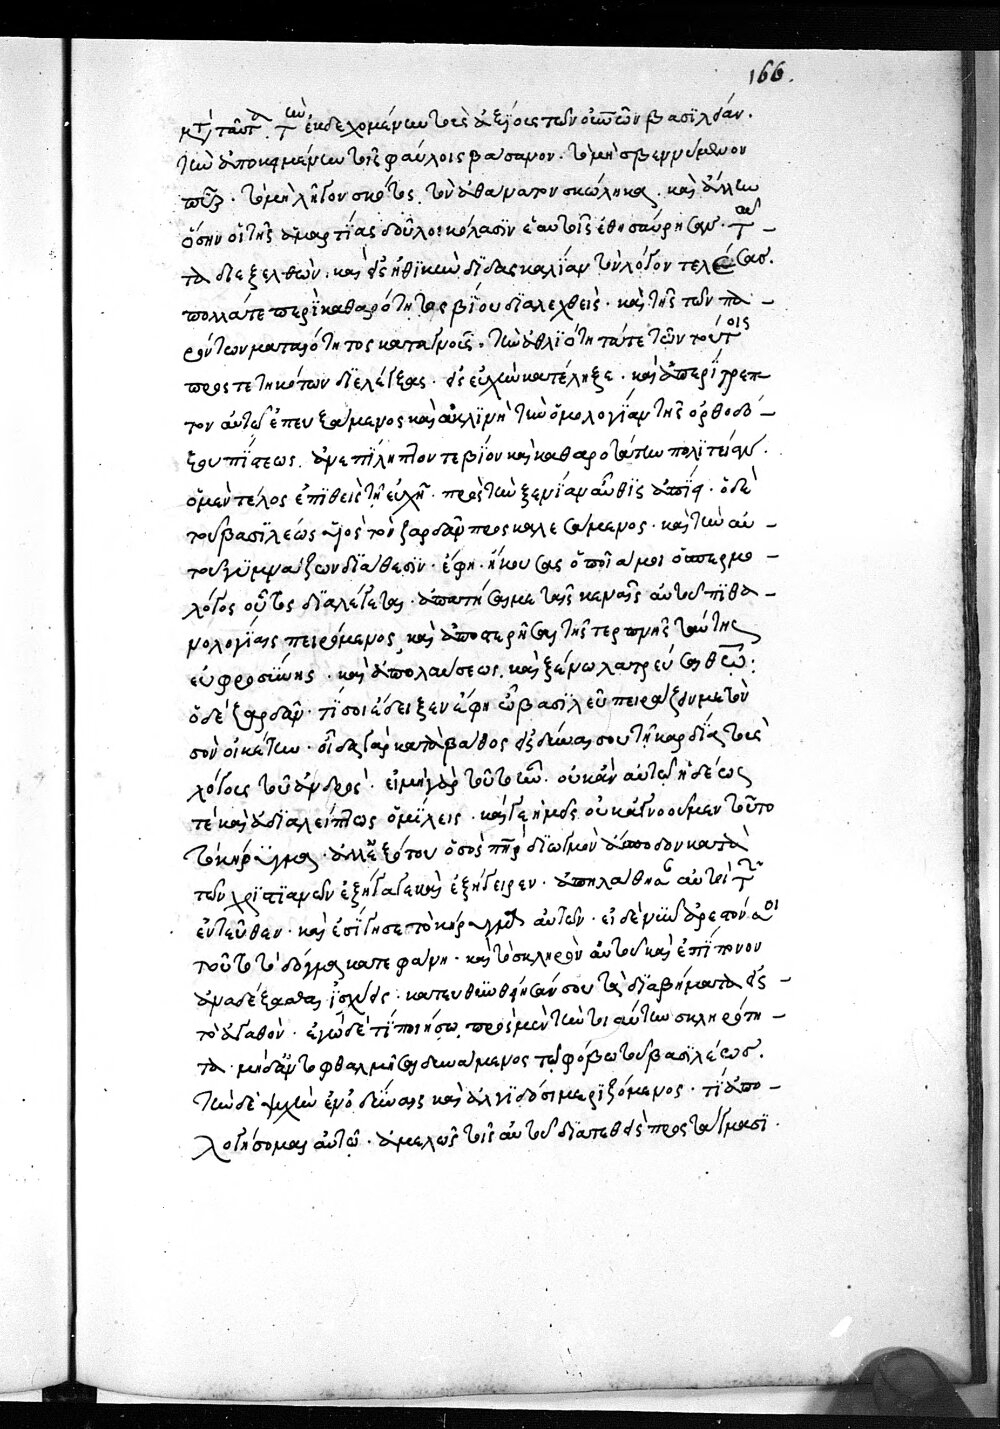 166.
κτ' ταῦτα. τὴν ἐκδεχομένην τοὺς ἀξίους τῶν οὐνῶν βασιλείαν.
τὴν ἀποκειμένην τοῖς φαύλοις βάσανον. τὸ μὴ σβεννύμενον
πῦρ. τὸ μὴ λῆγον σκότος. τὸν ἀθάνατον σκώληκα. καὶ ἄλλην
ὅσην οἱ τῆς ἁμαρτίας δοῦλοι κόλασιν ἑαυτοῖς ἐθησαύρησαν. ταῦ-
τα διεξελθὼν. καὶ εἰς ἠθικὴν διδασκαλίαν τὸν λόγον τελέσας.
πολλά τε περὶ καθαρότητος βίου διαλεχθεὶς. καὶ τῆς τῶν πα-
ρόντων ματαιότητος καταγνοὺς. τὴν ἀθλιότητά τε τῶν τούτοις
προστετηκότων διελέγξας. εἰς εὐχὴν κατέληξε. καὶ ἀπερίτρεπ
τον αὐτῷ ἐπευξάμενος καὶ ἀκλινῆ τὴν ὁμολογίαν τῆς ὀρθοδό-
ξου πίστεως. ἀνεπίληπτόν τε βίον καὶ καθαρωτάτην πολιτείαν.
ὁ μὲν τέλος ἐπιθεὶς τῇ εὐχῇ. πρὸς τὴν ξενίαν αὖθις ἀπῄει. ὁ δὲ
τοῦ βασιλέως υἱὸς τὸν ζαρδὰν προσκαλεσάμενος. καὶ τὴν αὐ-
τοῦ γυμνάζων διάθεσιν. ἔφη. ἤκουσας ὁποῖά μοι ὁ σπερμο-
λόγος οὗτος διαλέγεται. ἀπατῆσαί με ταῖς κεναῖς αὐτοῦ πιθα-
νολογίαις πειρώμενος, καὶ ἀποστερῆσαι τῆς τερπνῆς ταύτης
εὐφροσύνης. καὶ ἀπολαύσεως, καὶ ξένῳ λατρεῦσαι θεῷ:
ὁ δὲ ζαρδὰν. τί σοι ἔδειξεν ἔφη ὦ βασιλεῦ πειράζειν με τὸν
σὸν οἰκέτην. οἶδα γὰρ κατὰ βάθος εἰσδῦναί σου τῇ καρδίᾳ τοὺς
λόγους τοῦ ἀνδρός. εἰ μὴ γὰρ τοῦτο ἦν. οὐκ ἂν αὐτῷ ἡδέως
τὲ καὶ ἀδιαλείπτως ὁμίλεις. καί γε ἡμεῖς οὐκ ἀγνοοῦμεν τοῦτο
τὸ κήρυγμα. ἀλλ' ἐξ ὅτου ὁ σὸς πηρ διωγμὸν ἄσπονδον κατὰ
τῶν χριστιανῶν ἐξήγαγε καὶ ἐξήγειρεν. ἀπηλάθησαν αὐτοὶ τῶν
ἐντεῦθεν. καὶ ἐσίγησε τὸ κήρυγμα αὐτῶν. εἰ δὲ νῦν ἀρεστόν σοι
τοῦτο τὸ δόγμα κατεφάνη. καὶ τὸ σκληρὸν αὐτοῦ καὶ ἐπίπονον
ἀναδέξασθαι ἰσχύεις. κατευθυνθήησάν σου τὰ διαβήματα εἰς
τὸ ἀγαθόν. ἐγὼ δὲ τί ποιήσω πρὸς μὲν τὴν τοιαύτην σκληρότη-
τα. μηδ' ἀντοφθαλμῆσαι δυνάμενος τῷ φόβῳ τοῦ βασιλέως.
τὴν δὲ ψυχὴν ἐν ὀδύναις καὶ ἀλγηδόσι μεριζόμενος. τί ἀπο-
λογήσομαι αὐτῷ. ἀμελῶς τοῖς αὐτοῦ διατεθεὶς προστάγμασι.